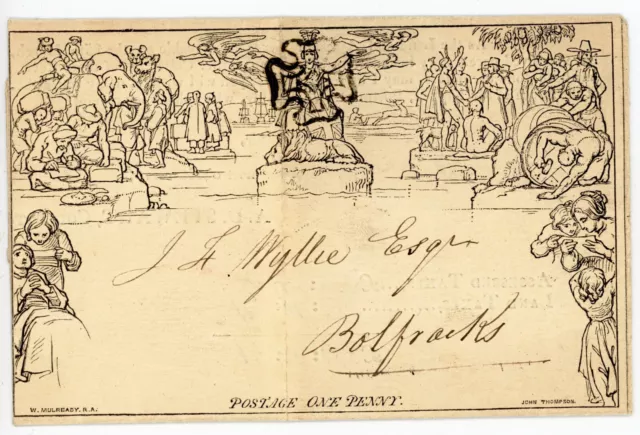 J F Wyllie Esqr
Bolfracks
POSTAGE ONE PENNY.
W. MULREADY. R.A.
JOHN THOMPSON.